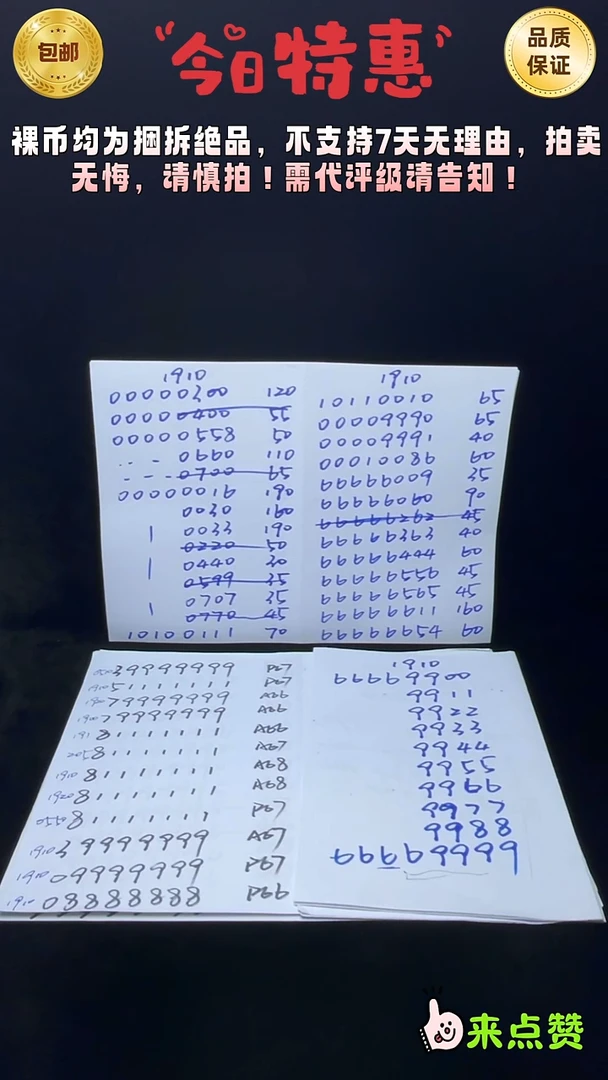 包邮
今日特惠
品质
保证
裸币均为捆拆绝品，不支持7天无理由，拍卖
无悔，请慎拍！需代评级请告知！
1910
00000300 120
00000400 55
00000558 50
0660 110
0700 65
00000016 190
0030 160
0033 190
0220 50
0440 30
0599 35
0707 35
0770 45
10100111 70
1910
10110010 65
00009990 65
00009991 40
00010086 60
66666009 35
66666060 90
66666262 45
66666363 40
66666444 60
66666556 45
66666565 45
66666611 160
66666654 60
39999999 P67
1910 51111111 P67
79999999 A66
79999999 A66
81111111 A66
2058 81111111 A67
1910 81111111 A68
1920 81111111 A68
0550 81111111 P67
1910 39999999 A67
1910 09999999 P67
1910 08888888 P66
1910
66669900
9911
9922
9933
9944
9955
9966
9977
9988
66669999
来点赞